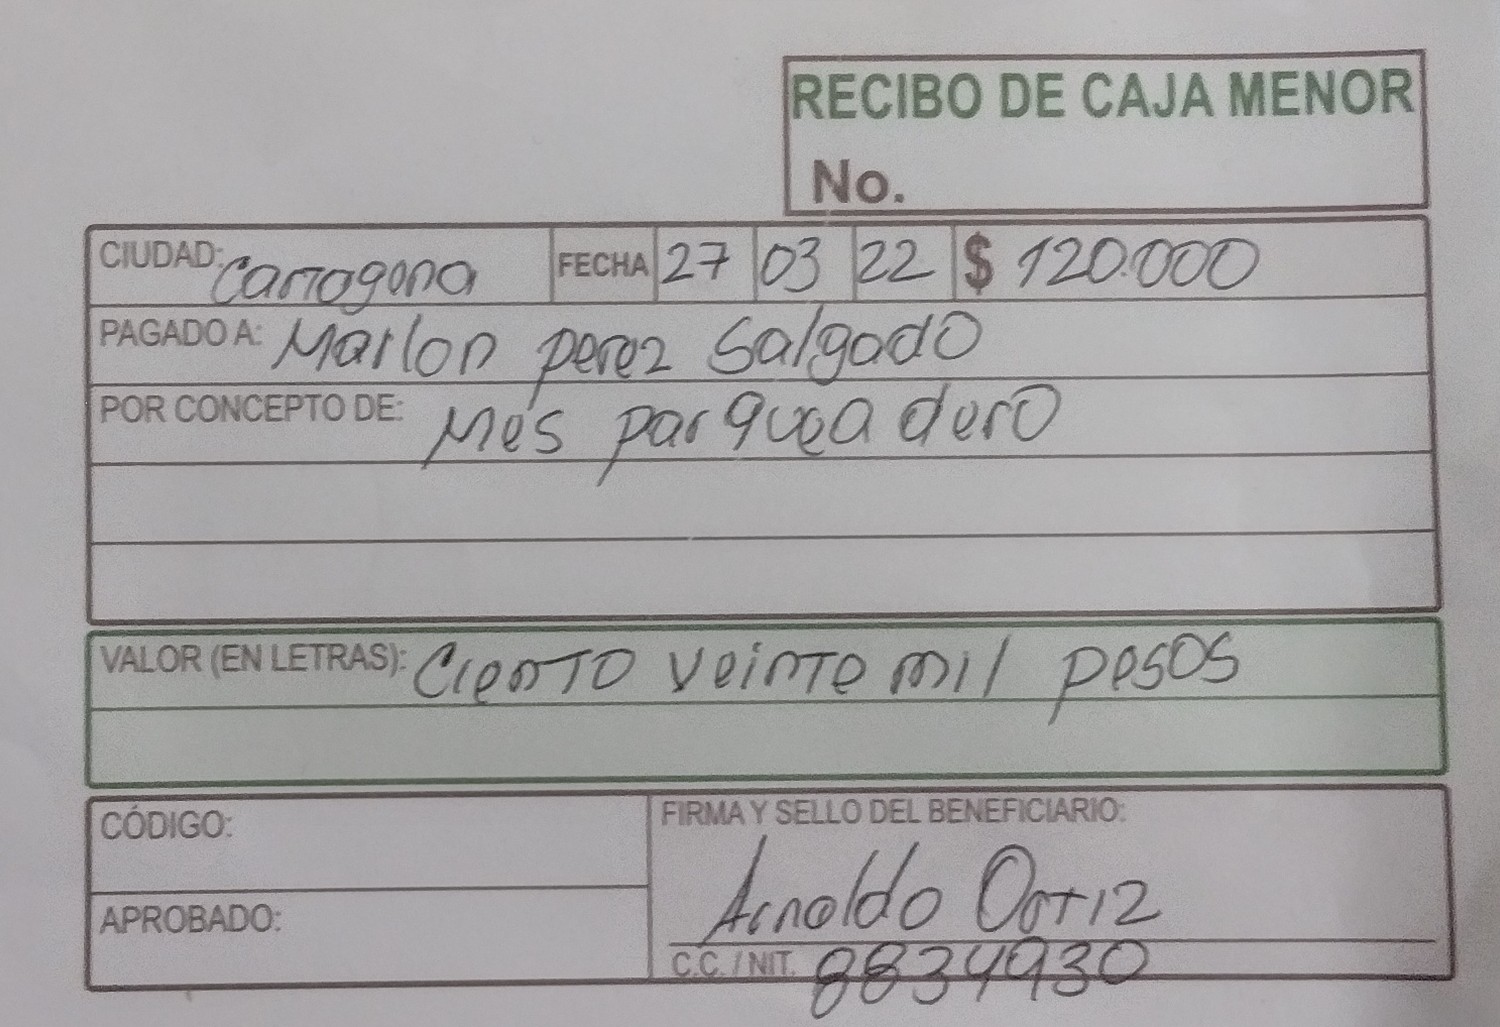 RECIBO DE CAJA MENOR
No.
CIUDAD: Cartagena FECHA 27 03 22 $ 120.000
PAGADO A: Marlon perez Salgado
POR CONCEPTO DE: Mes parqueadero
VALOR (EN LETRAS): Ciento veinte mil pesos
CÓDIGO:
APROBADO:
FIRMA Y SELLO DEL BENEFICIARIO:
Arnoldo Ortiz
C.C. / NIT. 8834930